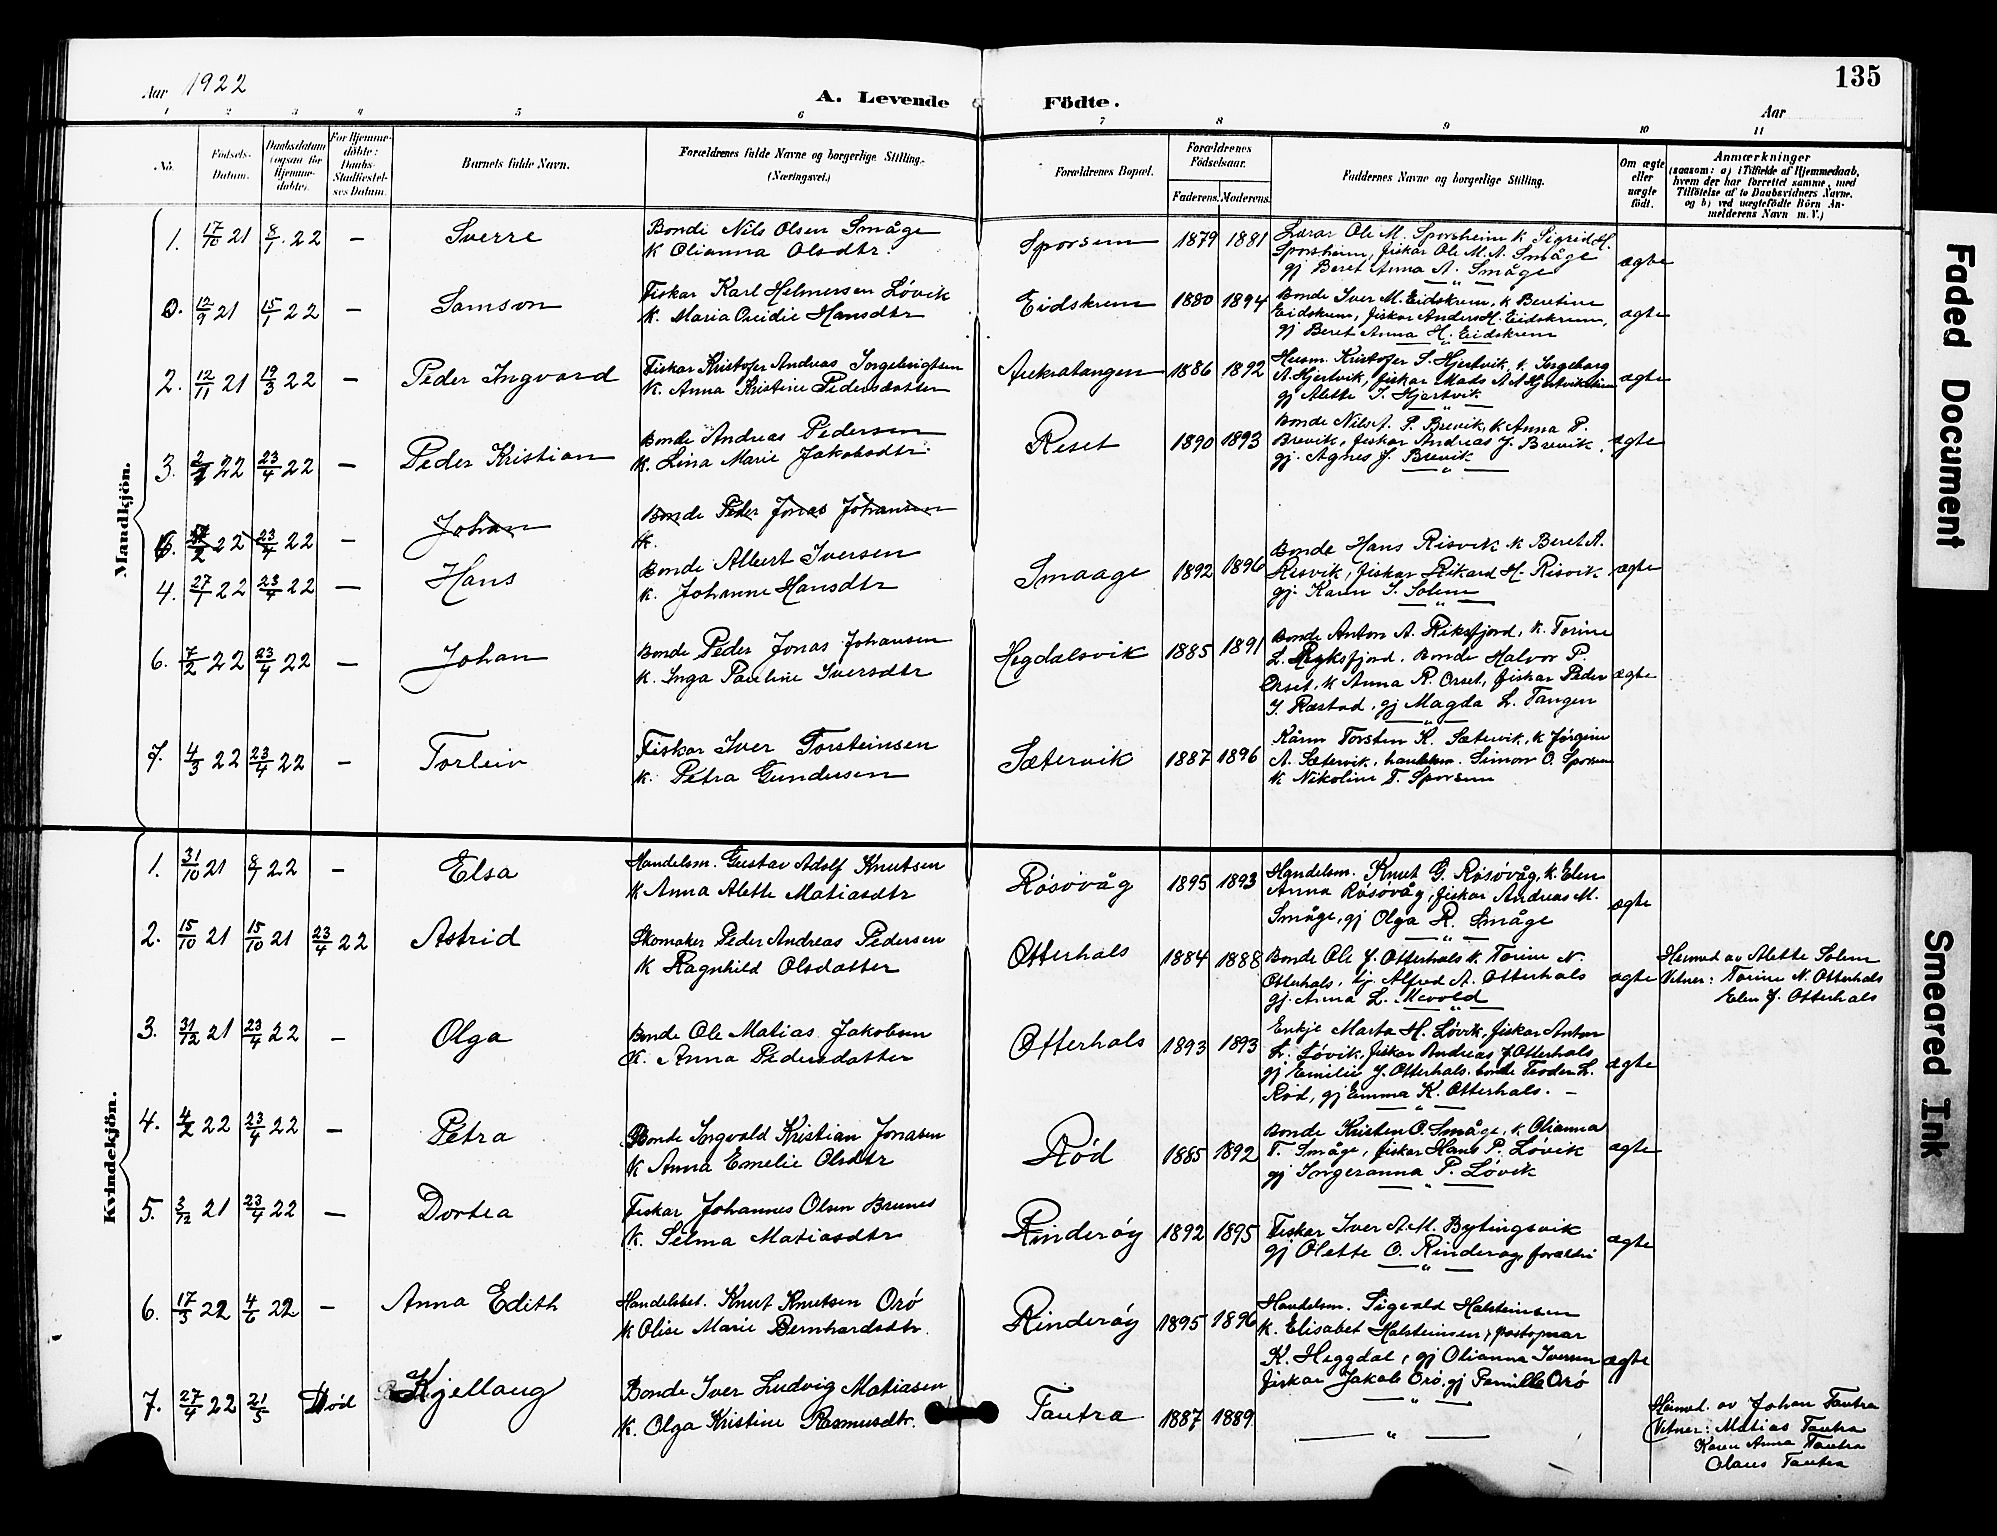 Aar 1922
A. Levende Födte.
Aar
135
1 2 3 4 5 6 7 8 9 10 11
No.
Födsels-
Datum.
Daabsdatum
(ogsaa for
Hjemme-
döbte).
For Hjemme-
döbte:
Daabs-
Stadfæstel-
ses Datum.
Barnets fulde Navn.
Forældrenes fulde Navne og borgerlige Stilling.
(Næringsvei.)
Forældrenes Bopæl.
Forældrenes
Födselsaar.
Faderens. Moderens.
Faddernes Navne og borgerlige Stilling.
Om ægte
eller
uægte
födt.
Anmærkninger
(saasom: a) i Tilfælde af Hjemmedaab,
hvem der har forrettet samme, med
Tilföielse af to Daabsvidners Navne.
og b) ved uægtefödte Börn An-
melderens Navn m. V.)
Mandkjön.
1. 17/10 21 8/1 22 — Sverre
Bonde Nils Olsen Småge
k Olianna Olsdtr.
Sporsem 1879 1881
Lærar Ole M. Sporsheim k Sigrid H.
Sporsheim, fiskar Ole M. A. Småge
gj Beret Anna A. Småge
ægte
12/9 21 15/1 22 — Samson
Fiskar Karl Helmersen Løvik
k. Maria Hansdtr
Eidskrem 1880 1894
Bonde Iver M. Eidskrem, k Beretine
Eidskrem, fiskar Anders H. Eidskrem,
gj Beret Anna H. Eidskrem
ægte
2. 12/11 21 19/3 22 — Peder Ingvard
Fiskar Kristofer Andreas Ingebrigtsen
k. Anna Kristine Pedersdatter
1886 1892
Husm. Kristofer S. Hjertvik, k. Ingeborg
A. Hjertvik, fiskar Mads A. Hjertvik
gj Alette I. Hjertvik
ægte
3. 22 23/4 22 — Peder Kristian
Bonde Andreas Pedersen
k. Lina Marie Jakobsdtr.
Reset 1890 1893
Bonde Nils A. P. Brevik, k Anna P.
Brevik, fiskar Andreas J. Brevik,
gj. Agnes J. Brevik
ægte
22 23/4 22 — Johan
Bonde Peder Jonas Johansen
k.
4. 27/1 22 23/4 22 — Hans
Bonde Albert Iversen
k. Johanne Hansdtr
Smaage 1892 1896
Bonde Hans Risvik k Beret A.
Risvik, fiskar Rikard H. Risvik
gj. Karen I. Solem
ægte
6. 7/2 22 23/4 22 — Johan
Bonde Peder Jonas Johansen
k. Inga Pauline Iversdtr
Hegdalsvik 1885 1891
Bonde Anton A. Riksfjord, k. Torine
L. Riksfjord. Bonde Halvor P.
Orset, k Anna R. Orset, fiskar Peder
I. Ræstad, gj Magda L. Tangen
ægte
7. 4/3 22 23/4 22 — Torleiv
Fiskar Iver Torsteinsen
k. Petra Gundersen
Sætervik 1887 1896
Kårm Torsten K. Sætervik, k Jørgine
A. Sætervik, handelsm. Simon O. Sporsem
k Nikoline T. Sporsem
Kvindekjön.
1. 31/10 21 8/1 22 — Elsa
Handelsm. Gustav Adolf Knutsen
k Anna Alette Matiasdtr
Røsøvåg 1895 1893
Handelsm. Knut G. Røsøvåg, k. Elen
Anna Røsøvåg, fiskar Andreas M.
Småge, gj Olga R. Småge
ægte
2. 15/10 21 15/10 21 23/4 22 Astrid
Skomaker Peder Andreas Pedersen
k Ragnhild Olsdatter
Otterhals 1884 1888
Bonde Ole J. Otterhals k. Torine N.
Otterhals, Alfred A. Otterhals
gj. Anna L. Mevold
ægte
Heimed. av Alette Solem
Vitner: Torine N. Otterhals
Elen J. Otterhals
3. 31/12 21 23/4 22 — Olga
Bonde Ole Matias Jakobsen
k. Anna Pedersdatter
Otterhals 1893 1893
Enkje Marta H. Løvik, fiskar Anton
L. Løvik, fiskar Andreas J. Otterhals
gj Emilie J. Otterhals. bonde Teodor L.
Rød, gj Emma K. Otterhals. —
ægte
4. 4/2 22 23/4 22 — Petra
Bonde Ingvald Kristian Jonasen
k Anna Emelie Olsdtr
Rød 1885 1892
Bonde Kristen O. Småge, k. Olianna
T. Småge, fiskar Hans P. Løvik
gj Ingeranna P. Løvik
ægte
5. 3/12 21 23/4 22 — Dortea
Fiskar Johannes Olsen Brunes
k. Selma Matiasdtr
Rinderøy 1892 1895
Fiskar Iver A. M. Bytingsvik
gj Olette O. Rinderøy, foreldri
ægte
6. 17/3 22 4/6 22 — Anna Edith
Handelsbet. Knut Knutsen Orø
k Olise Marie Bernhardsdtr.
Rinderøy 1895 1896
Handelsm. Sigvald Halsteinsen
k. Elisabet Halsteinsen, postopnar
K. Heggdal, gj Olianna Iversen
fiskar Jakob Orø, gj Pernille Orø
ægte
7. 27/4 22 21/5 Død Kjellaug
Bonde Iver Ludvig Matiasen
k. Olga Kristine Rasmusdtr.
Tautra 1887 1889
Heimed. av Johan Tautra
Vitner: Matias Tautra
Karen Anna Tautra
Olaus Tautra
Faded Document
Smeared Ink